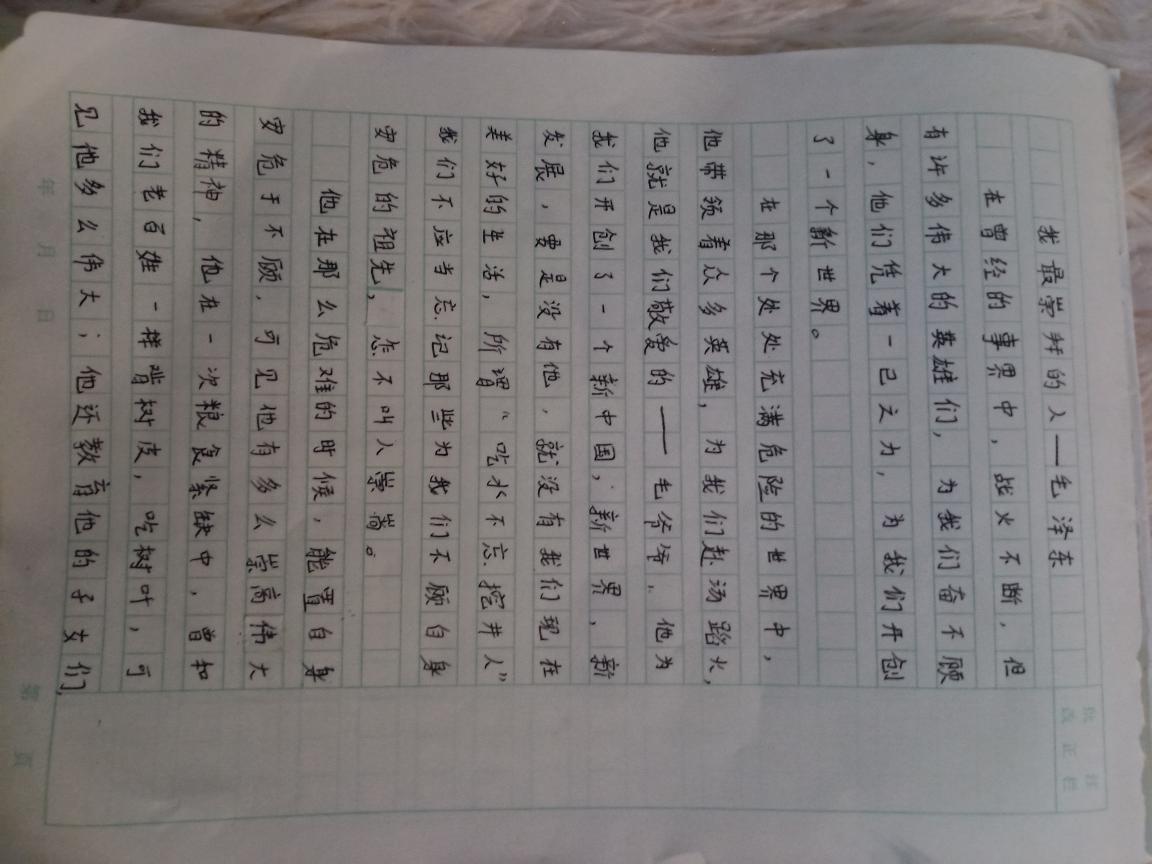 我最崇拜的人——毛泽东
在曾经的事界中，战火不断，但
有许多伟大的英雄们，为我们奋不顾
身，他们凭着一己之力，为我们开创
了一个新世界。
在那个处处充满危险的世界中，
他带领着众多英雄，为我们赴汤蹈火，
他就是我们敬爱的——毛爷爷。他为
我们开创了一个新中国，新世界，新
发展，要是没有他，就没有我们现在
美好的生活，所谓“吃水不忘挖井人”
我们不应当忘记那些为我们不顾自身
安危的祖先，怎不叫人崇尚。
他在那么危难的时候，能置自身
安危于不顾，可见他有多么崇高伟大
的精神，他在一次粮食紧缺中，曾和
我们老百姓一样啃树皮，吃树叶，可
见他多么伟大；他还教育他的子女们，
年 月 日
第 页
批改
正栏